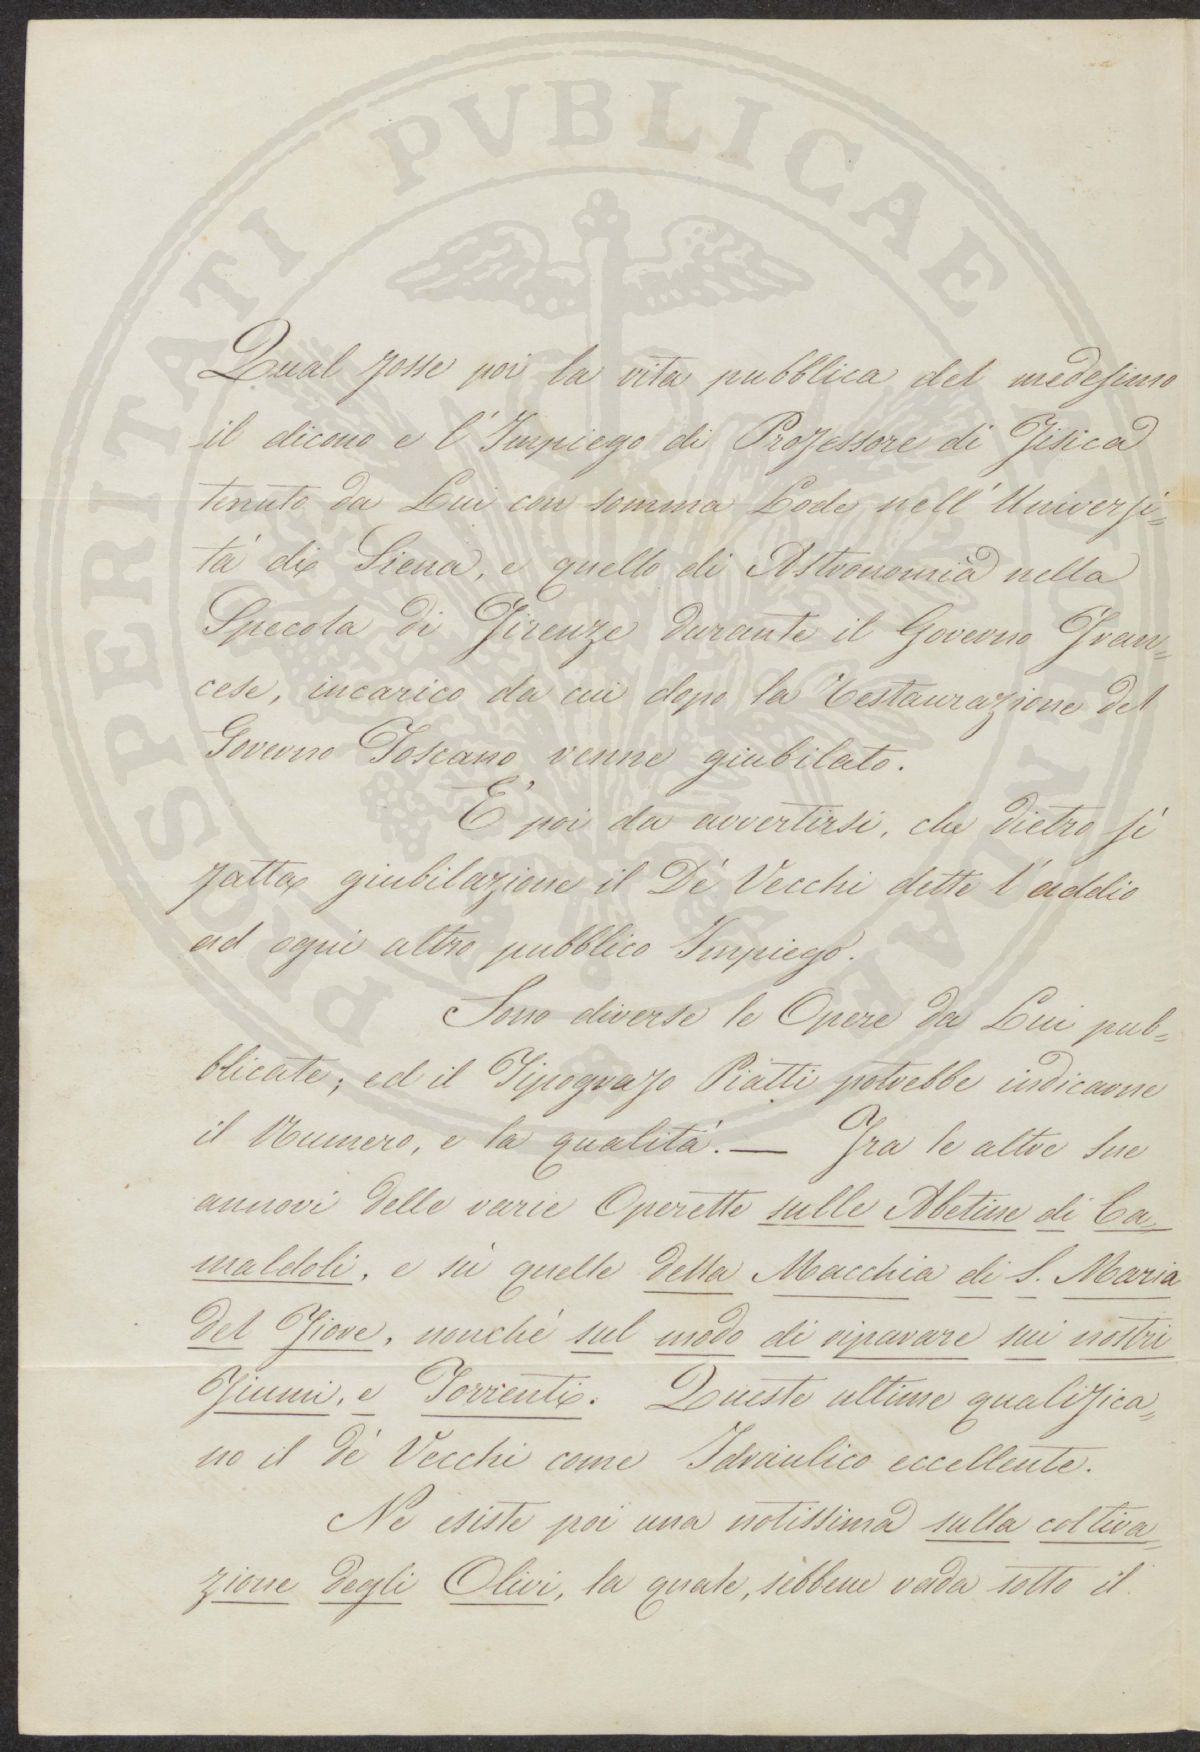 PROSPERITATI PVBLICAE AVGENDAE
Qual fosse poi la vita pubblica del medesimo
il dicono e l'Impiego di Professore di Fisica
tenuto da Lui con somma Lode nell'Universi=
tà di Siena, e quello di Astronomia nella
Specola di Firenze durante il Governo Fran=
cese, incarico da cui dopo la restaurazione del
Governo Toscano venne giubilato.
E' poi da avvertirsi, che dietro sì
fatta giubilazione il De' Vecchi dette l'addio
ad ogni altro pubblico Impiego.
Sono diverse le Opere da Lui pub=
blicate; ed il Tipografo Piatti potrebbe indicarne
il Numero, e la qualità. — Fra le altre sue
annovi delle varie Operette sulle Abetine di Ca=
maldoli, e sù quelle della Macchia di S. Maria
del Fiore, nonchè sul modo di riparare sui nostri
Fiumi, e Torrenti. Queste ultime qualifica=
no il de' Vecchi come Idraulico eccellente.
Ne esiste poi una notissima sulla coltiva=
zione degli Olivi, la quale, sebbene vada sotto il